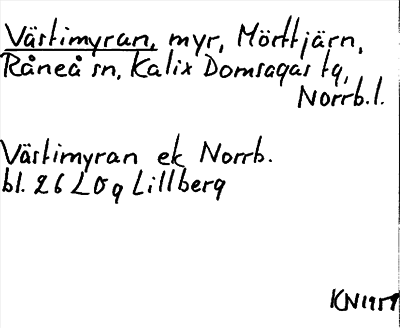 Västimyran, myr, Mörttjärn,
Råneå sn, Kalix Domsagas tg,
Norrb. l.
Västimyran ek Norrb.
bl. 26 L0g Lillberg
KN 1959